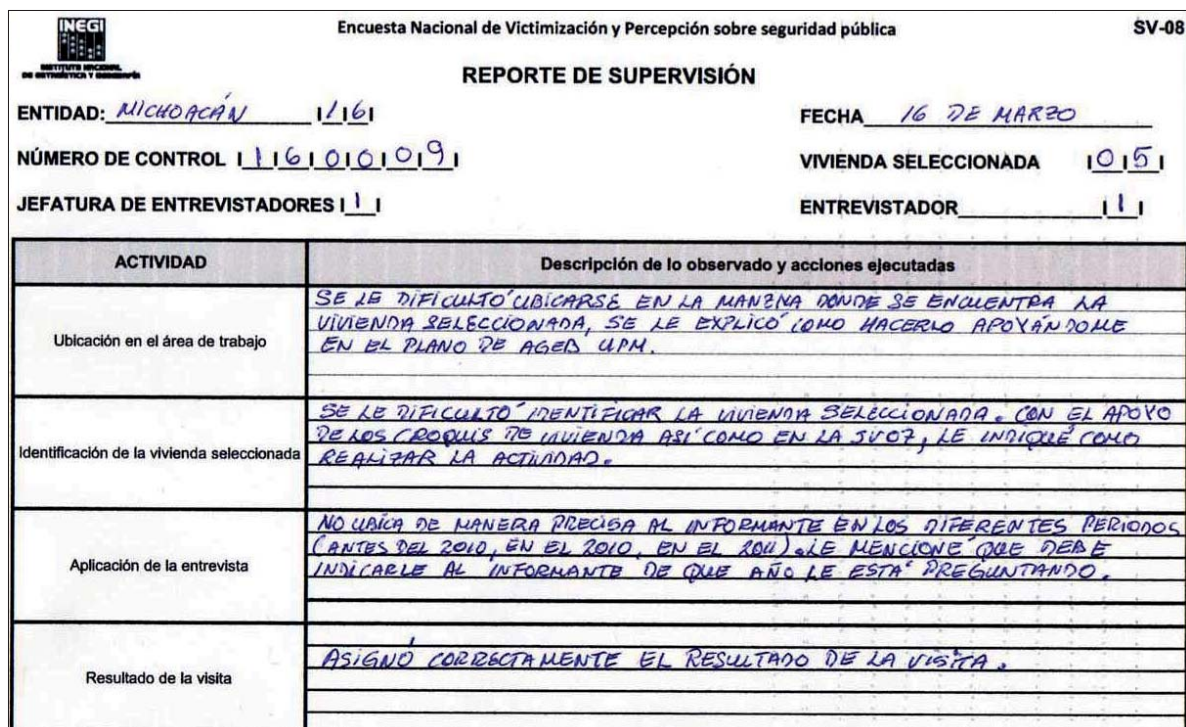 INEGI
INSTITUTO NACIONAL
DE ESTADÍSTICA Y GEOGRAFÍA
Encuesta Nacional de Victimización y Percepción sobre seguridad pública
SV-08
REPORTE DE SUPERVISIÓN
ENTIDAD: MICHOACÁN |1|6|
FECHA 16 DE MARZO
NÚMERO DE CONTROL |1|6|0|0|0|9|
VIVIENDA SELECCIONADA |0|5|
JEFATURA DE ENTREVISTADORES |1|
ENTREVISTADOR |1|
ACTIVIDAD
Descripción de lo observado y acciones ejecutadas
Ubicación en el área de trabajo
SE LE DIFICULTÓ UBICARSE EN LA MANZNA DONDE SE ENCUENTRA LA
VIVIENDA SELECCIONADA, SE LE EXPLICÓ COMO HACERLO APOYÁNDOME
EN EL PLANO DE AGEB UPM.
Identificación de la vivienda seleccionada
SE LE DIFICULTÓ IDENTIFICAR LA VIVIENDA SELECCIONADA. CON EL APOYO
DE LOS CROQUIS DE VIVIENDA ASÍ COMO EN LA SV07, LE INDIQUÉ COMO
REALIZAR LA ACTIVIDAD.
Aplicación de la entrevista
NO UBICA DE MANERA PRECISA AL INFORMANTE EN LOS DIFERENTES PERIODOS
(ANTES DEL 2010, EN EL 2010, EN EL 2011). LE MENCIONE QUE DEBE
INDICARLE AL INFORMANTE DE QUE AÑO LE ESTÁ PREGUNTANDO.
Resultado de la visita
ASIGNÓ CORRECTAMENTE EL RESULTADO DE LA VISITA.